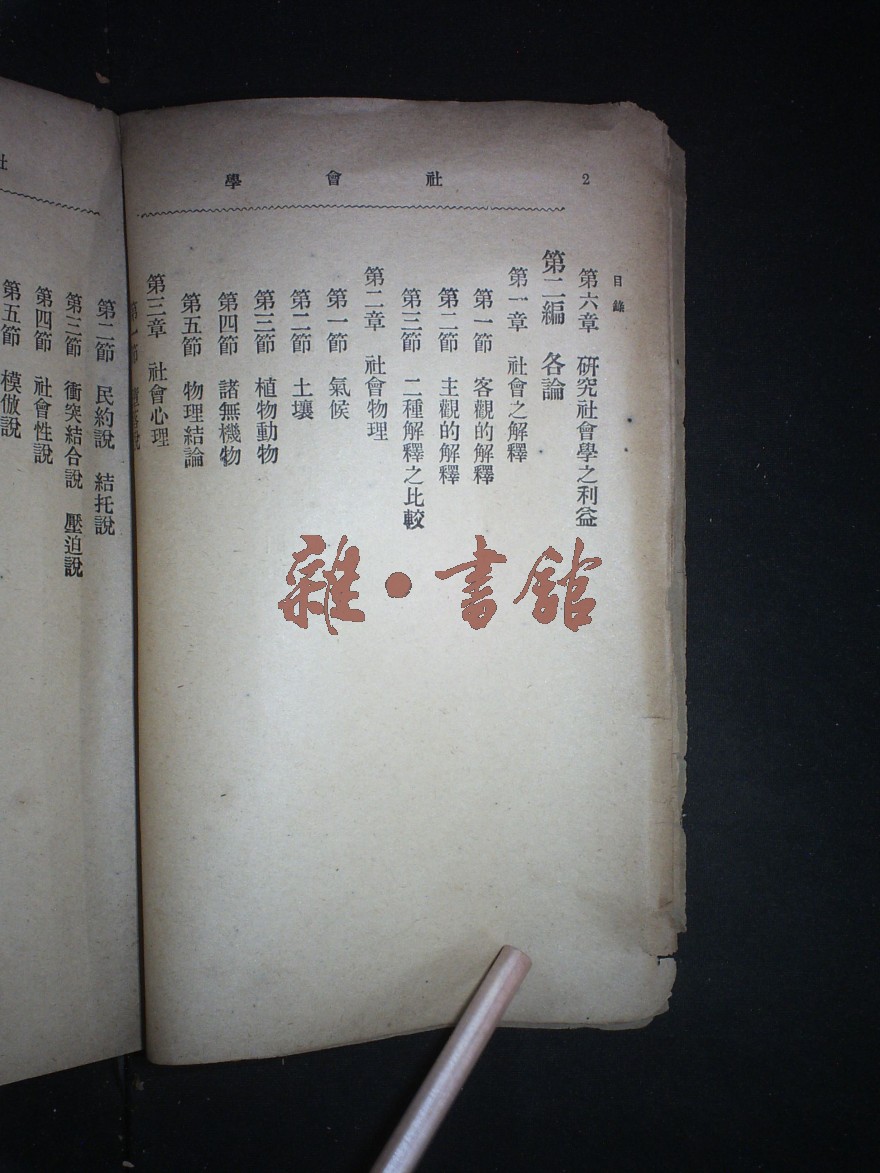 2
社會學
目錄
第六章 研究社會學之利益
第二編 各論
第一章 社會之解釋
第一節 客觀的解釋
第二節 主觀的解釋
第三節 二種解釋之比較
第二章 社會物理
第一節 氣候
第二節 土壤
第三節 植物動物
第四節 諸無機物
第五節 物理結論
第三章 社會心理
社
第二節 民約說 結托說
第三節 衝突結合說 壓迫說
第四節 社會性說
第五節 模倣說
雜·書館